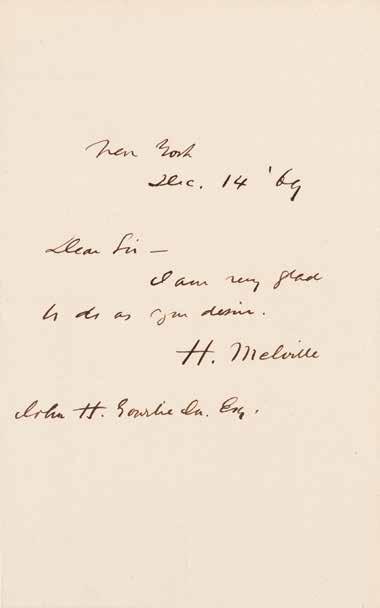 New York
Dec. 14 '69
Dear Sir —
I am very glad
to do as you desire.
H. Melville
John H. Gourlie Jr. Esq.